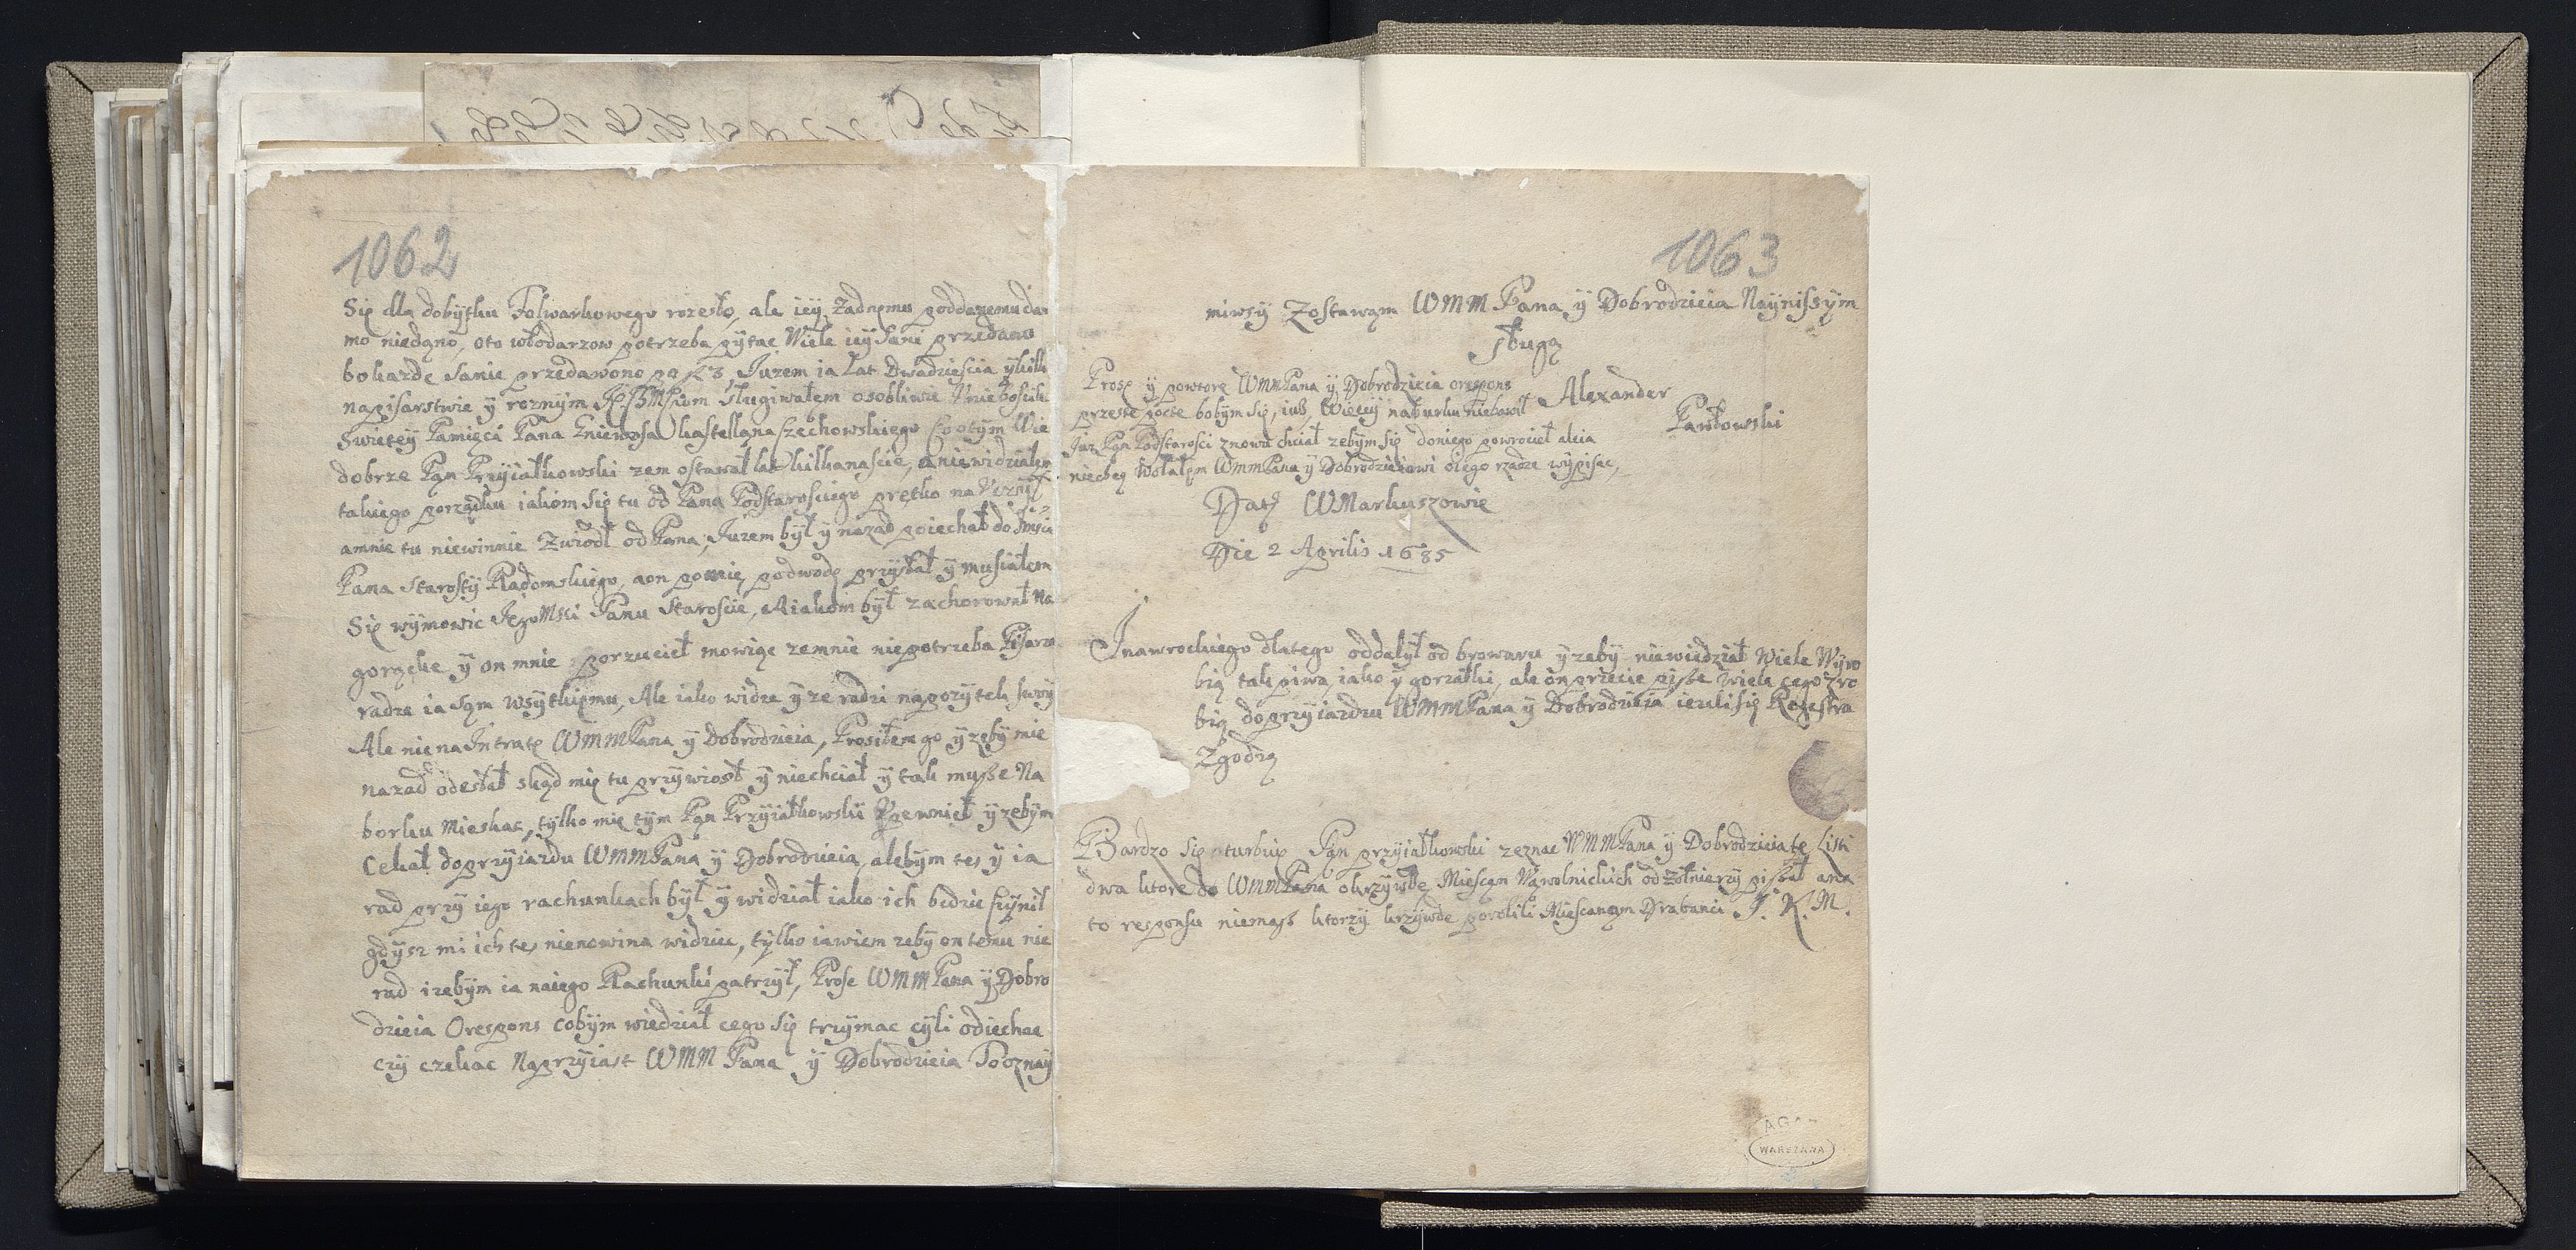 1062
Się dla dobytku Folwarkowego rozesło, ale iey zadnemu poddanemu dar
mo niedano, oto włodarzow potrzeba pytac Wiele iey Sani przedano
bo kazde Sanie przedawono po f 3 Juzem ia Lat Dwadziescia y kilk
na pisarstwie y roznym sługiwałem osobliwie
Swietey Pamięci Pana Gniewosa Kastellana Czechowskiego Co o tym Wie
dobrze Pan Przyiałkowski zem ostawał lat kilkanascie, a niewidziałem
takiego porządku iakom Się tu od Pana Podstarosciego prętko na
amnie tu niewinnie Zwiodł od Pana, Juzem był y nazad poiechał do Jmsci
Pana Starosty Radomskiego, aon pomie podwodę przysłał y musiałem
Się wymowic JegoMsci Panu Staroscie, A iakom był zachorował Na
gorączkę y on mnie porzucieł mowiąc zemnie niepotrzeba Pisarza
radze ia Sąm wsytkiemu, Ale iako widze y ze radzi napozytek swoy
Ale nie na Intratę WMMPana y Dobrodzieia, Prosiłem go y zeby mie
nazad odesłał skąd mię tu przywiosł y niechciał y tak musze Na
borku Mieskac, tylko mię tym Pan Przyiałkowski Upewnieł y zebym
Cekał do przyiazdu WMMPana y Dobrodzieia, alebym tes y ia
rad przy iego rachunkach był y widział iako ich bedzie Czynił
gdysz mi ich tes nienowina widziec, tylko ia wiem zeby on temu nie
rad izebym ia naiego Rachunki patrzył, Prose WMMPana y Dobro
dzieia O respons cobym wiedział cego Się trzymac cyli odiechac
czy czekac Na przyiast WMM Pana y Dobrodzieia To oznay
1063
miwsy Zostawam WMM Pana y Dobrodzieia Nayniszym
sługą
Proszę y powtore WMMPana y Dobrodzieia o respons
przeste poste bobym Się, iusz Więcey na burku niebawił
Alexander
Pawłowski
Juz Pan Podstarosci znowu chciał zebym Się doniego powrocieł aleia
niechcę Wolałem WMMPanu y Dobrodzieiowi o iego rządze wypisac,
Datt WMarkuszowie
Die 2 Aprilis 1685
Inawrockiego dlatego oddalył od browaru y zeby niewiedział Wiele Wyro
bią tak piwa iako y gorzałki, ale on przecie pisze Wiele cego zro
bią do przyiazdu WMMPana y Dobrodzieia iezeli się Regestra
Zgodzą
Bardzo Się turbuie Pan przyiałkowski ze znac WMMPana y Dobrodzieia te Listi
dwa ktore do WMMPana o krzywdę Miescąn Wąwolnickich od zołnierzy pisał a na
to responsu niemasz ktorzy krzywde porobili Miescanom Drabanci J. K. M.
AGA
WARSZAWA